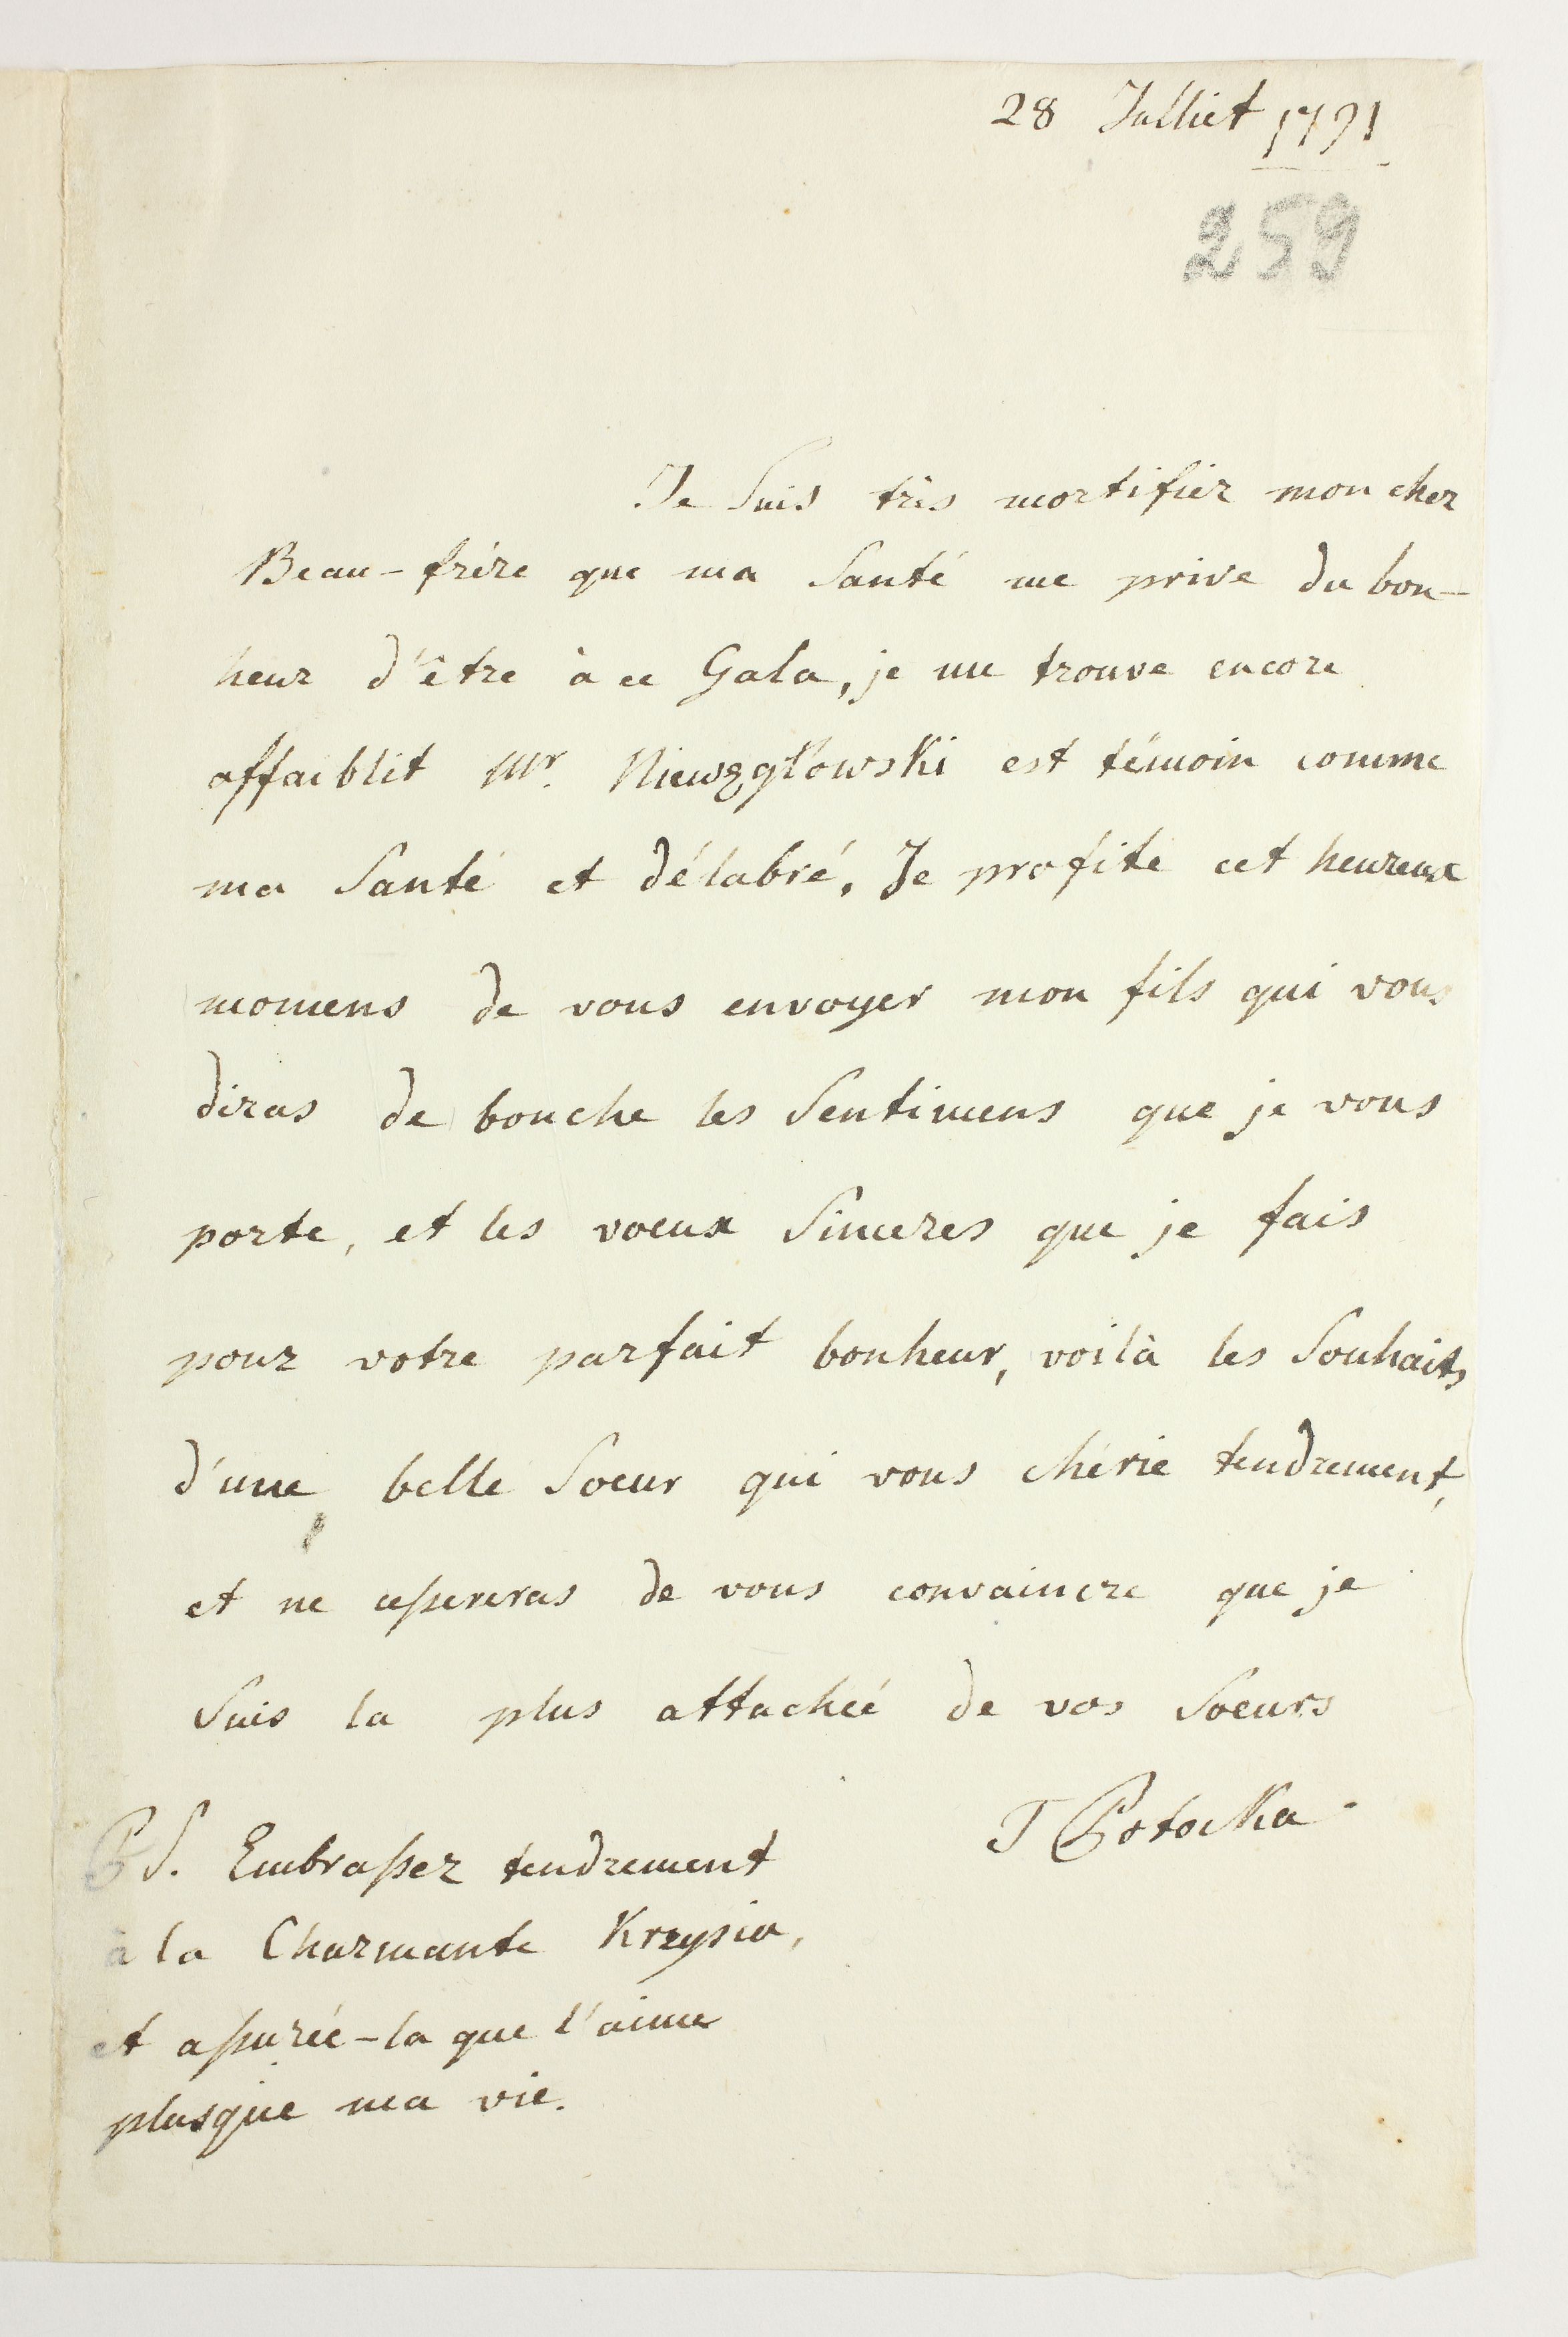 28 Julliet 1791
259
Je Suis très mortifier mon cher
Beau-frére que ma Santé me prive du bon-
heur d'être à ce Gala, je me trouve encore
affaiblit Mr. Niewzgłowski est témoin comme
ma Santé et délabré, Je profite cet heureux
momens de vous envoyer mon fils qui vous
diras de bouche les Sentimens que je vous
porte, et les voeux Sinceres que je fais
pour votre parfait bonheur, voilà les Souhaits
d'une belle Soeur qui vous chérie tendrement,
et ne cesseras de vous convaincre que je
Suis la plus attachée de vos Soeurs
T Potocka
PS. Embrassez tendrement
à la Charmante Krzysia,
et assurée-la que l'aime
plusque ma vie.